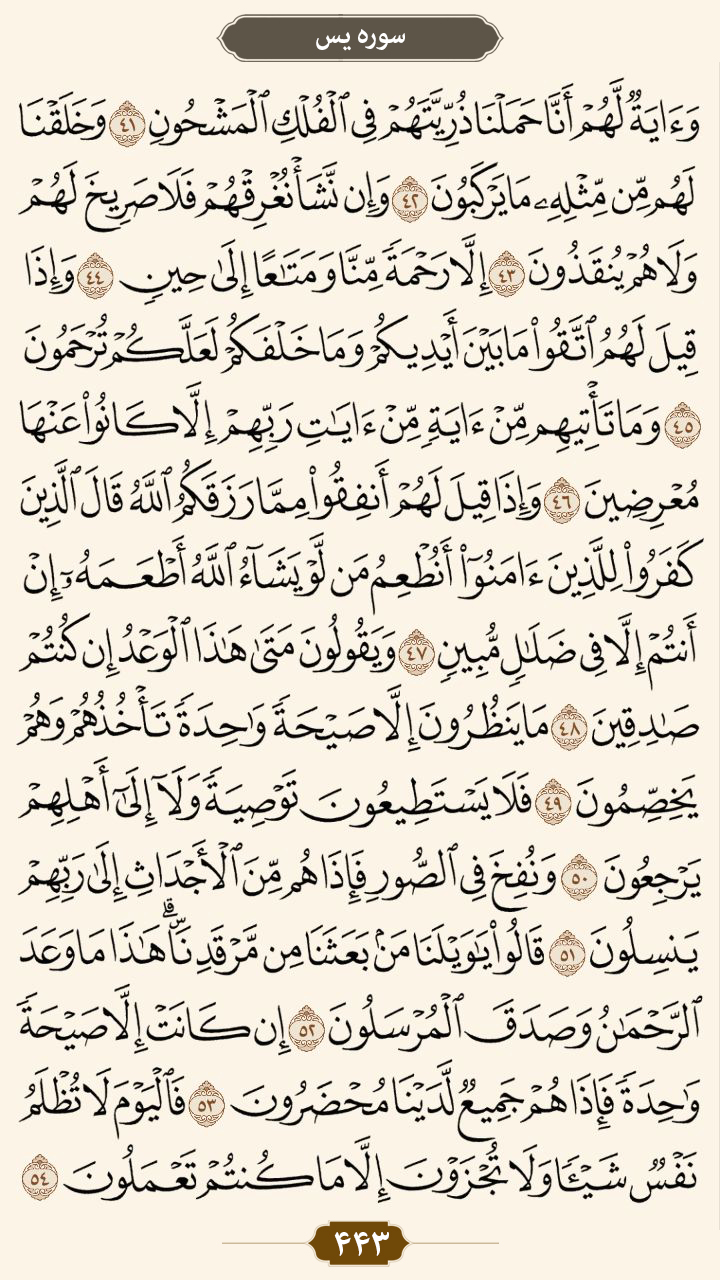 سوره یس
وَءَايَةٌ لَّهُمْ أَنَّا حَمَلْنَا ذُرِّيَّتَهُمْ فِي ٱلْفُلْكِ ٱلْمَشْحُونِ ٤١ وَخَلَقْنَا
لَهُم مِّن مِّثْلِهِۦ مَا يَرْكَبُونَ ٤٢ وَإِن نَّشَأْ نُغْرِقْهُمْ فَلَا صَرِيخَ لَهُمْ
وَلَا هُمْ يُنقَذُونَ ٤٣ إِلَّا رَحْمَةً مِّنَّا وَمَتَٰعًا إِلَىٰ حِينٍ ٤٤ وَإِذَا
قِيلَ لَهُمُ ٱتَّقُوا۟ مَا بَيْنَ أَيْدِيكُمْ وَمَا خَلْفَكُمْ لَعَلَّكُمْ تُرْحَمُونَ
٤٥ وَمَا تَأْتِيهِم مِّنْ ءَايَةٍ مِّنْ ءَايَٰتِ رَبِّهِمْ إِلَّا كَانُوا۟ عَنْهَا
مُعْرِضِينَ ٤٦ وَإِذَا قِيلَ لَهُمْ أَنفِقُوا۟ مِمَّا رَزَقَكُمُ ٱللَّهُ قَالَ ٱلَّذِينَ
كَفَرُوا۟ لِلَّذِينَ ءَامَنُوٓا۟ أَنُطْعِمُ مَن لَّوْ يَشَآءُ ٱللَّهُ أَطْعَمَهُۥٓ إِنْ
أَنتُمْ إِلَّا فِي ضَلَٰلٍ مُّبِينٍ ٤٧ وَيَقُولُونَ مَتَىٰ هَٰذَا ٱلْوَعْدُ إِن كُنتُمْ
صَٰدِقِينَ ٤٨ مَا يَنظُرُونَ إِلَّا صَيْحَةً وَٰحِدَةً تَأْخُذُهُمْ وَهُمْ
يَخِصِّمُونَ ٤٩ فَلَا يَسْتَطِيعُونَ تَوْصِيَةً وَلَآ إِلَىٰٓ أَهْلِهِمْ
يَرْجِعُونَ ٥٠ وَنُفِخَ فِي ٱلصُّورِ فَإِذَا هُم مِّنَ ٱلْأَجْدَاثِ إِلَىٰ رَبِّهِمْ
يَنسِلُونَ ٥١ قَالُوا۟ يَٰوَيْلَنَا مَنۢ بَعَثَنَا مِن مَّرْقَدِنَا ۜ ۗ هَٰذَا مَا وَعَدَ
ٱلرَّحْمَٰنُ وَصَدَقَ ٱلْمُرْسَلُونَ ٥٢ إِن كَانَتْ إِلَّا صَيْحَةً
وَٰحِدَةً فَإِذَا هُمْ جَمِيعٌ لَّدَيْنَا مُحْضَرُونَ ٥٣ فَٱلْيَوْمَ لَا تُظْلَمُ
نَفْسٌ شَيْـًٔا وَلَا تُجْزَوْنَ إِلَّا مَا كُنتُمْ تَعْمَلُونَ ٥٤
۴۴۳